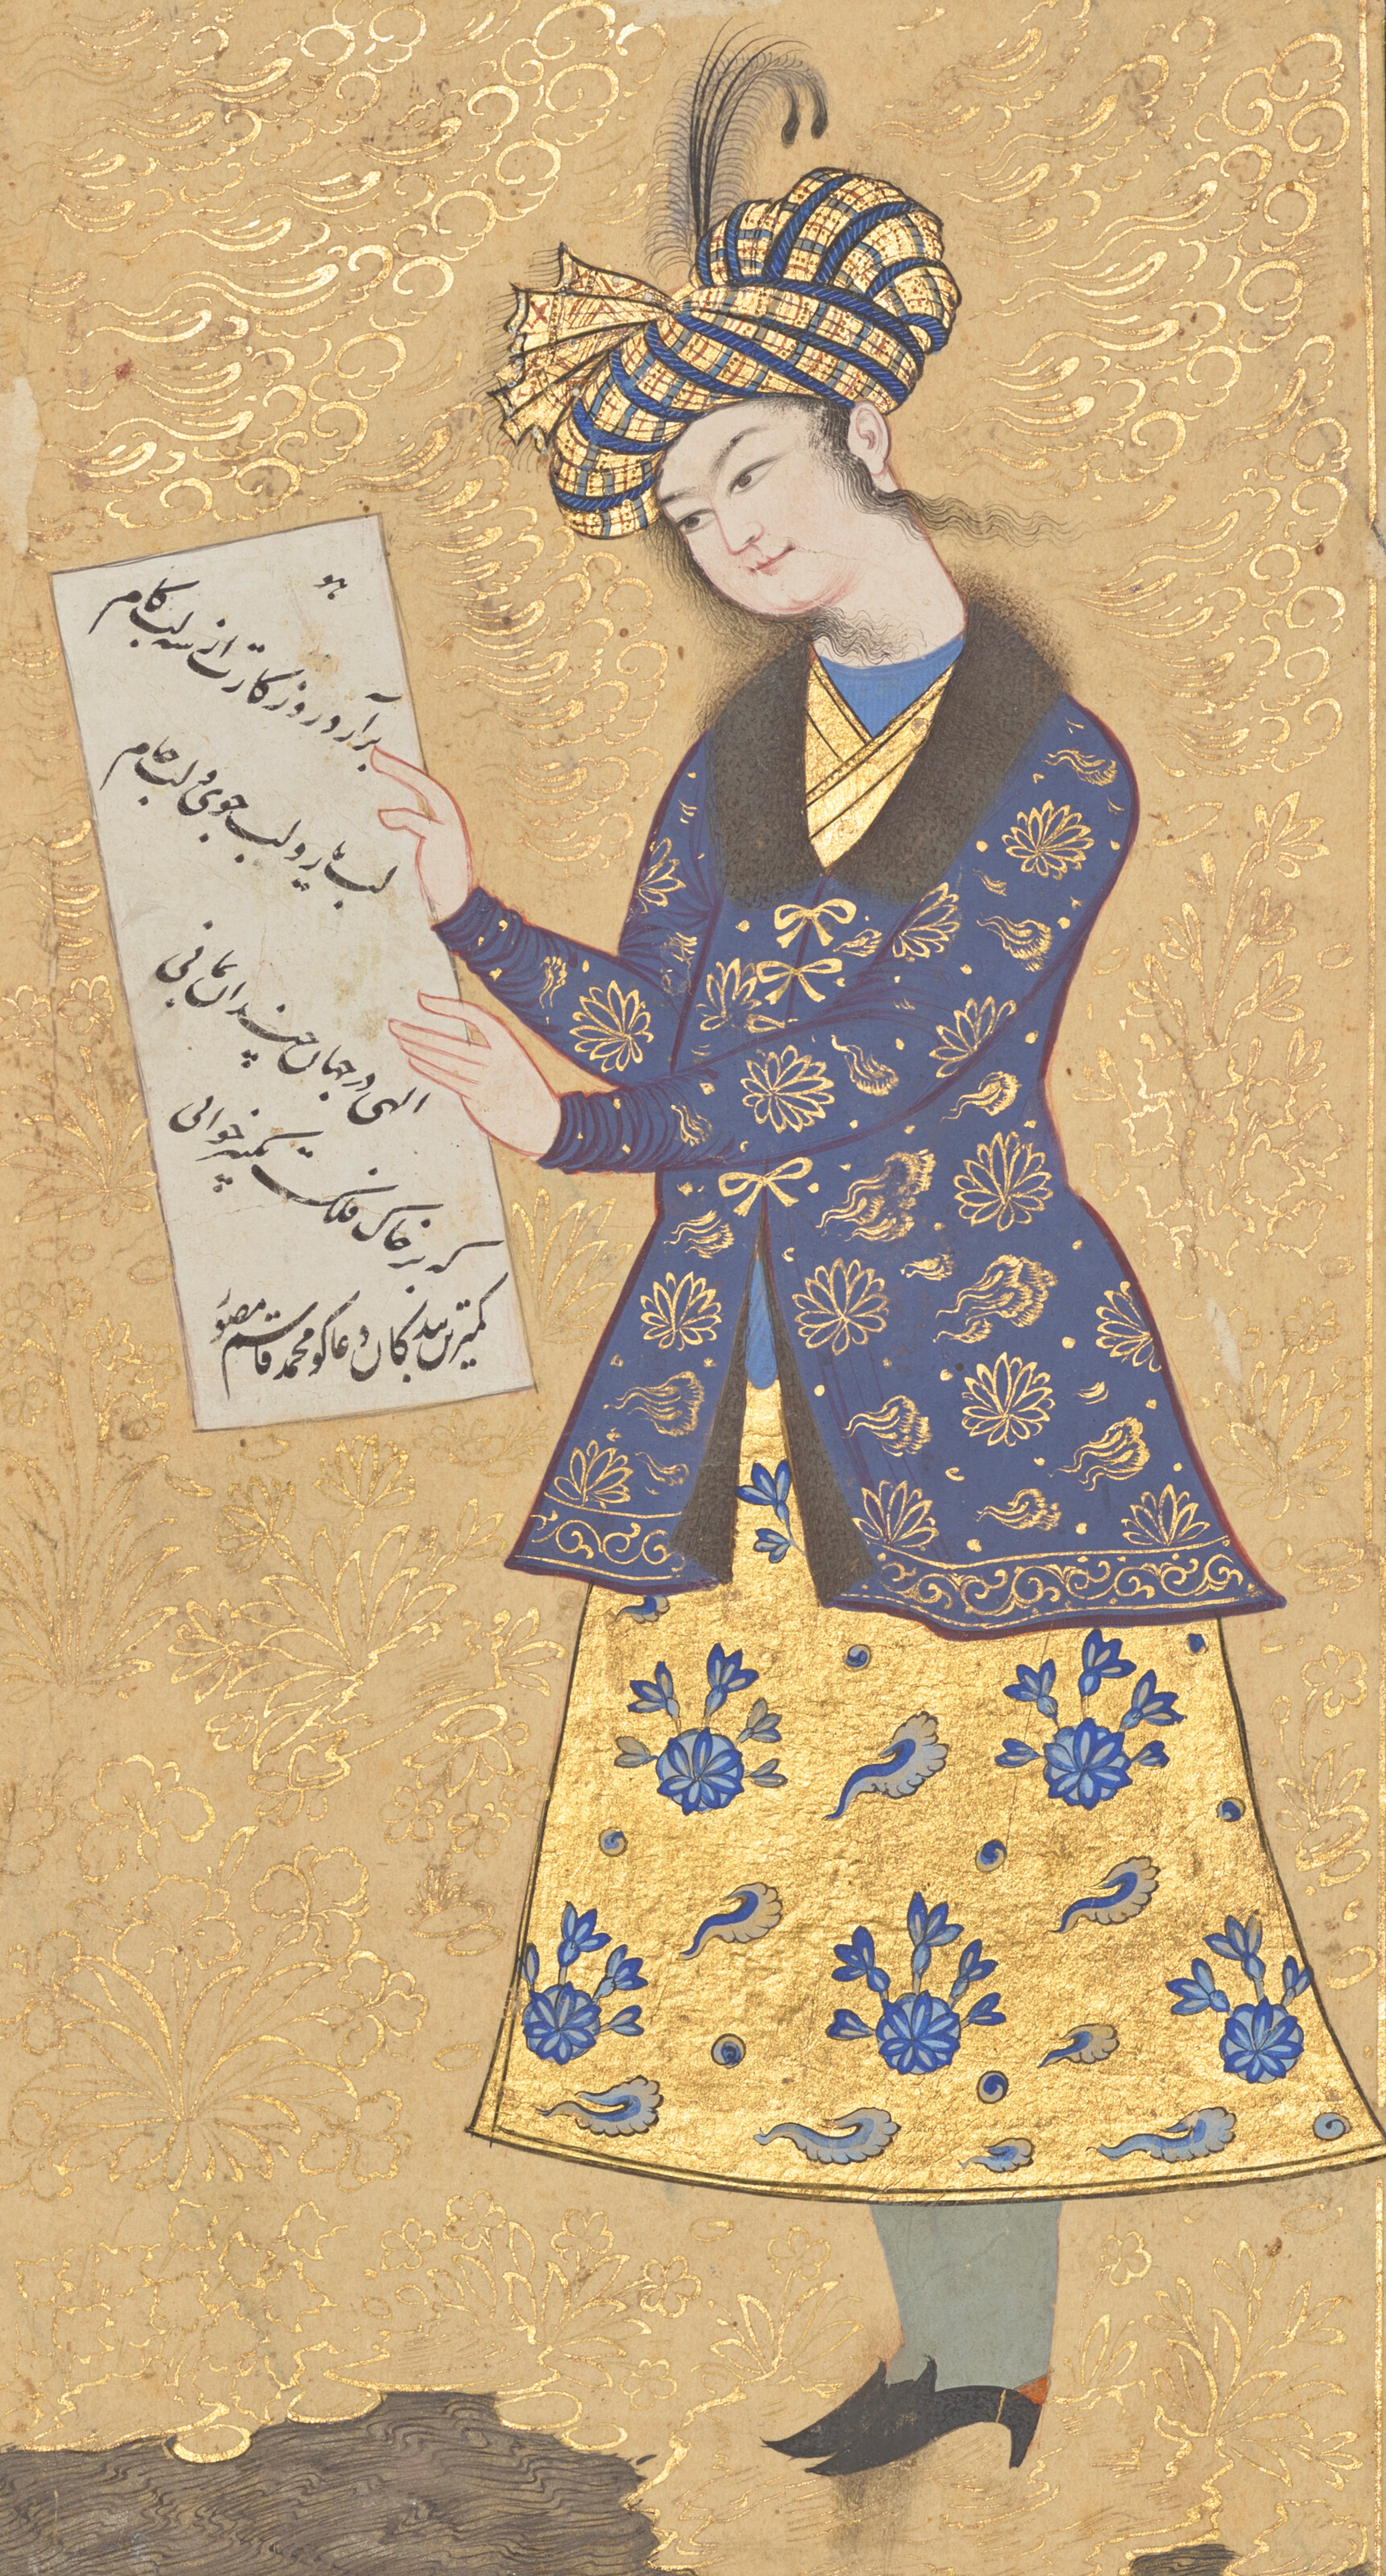 هو
برآرد روزگارت از سه لب کام
لب یار و لب جوی و لب جام
الهی در جهان چندان بمانی
که بر خاک فلک تکبیر خوانی
کمترین بندگان دعاگو محمد قاسم مصور